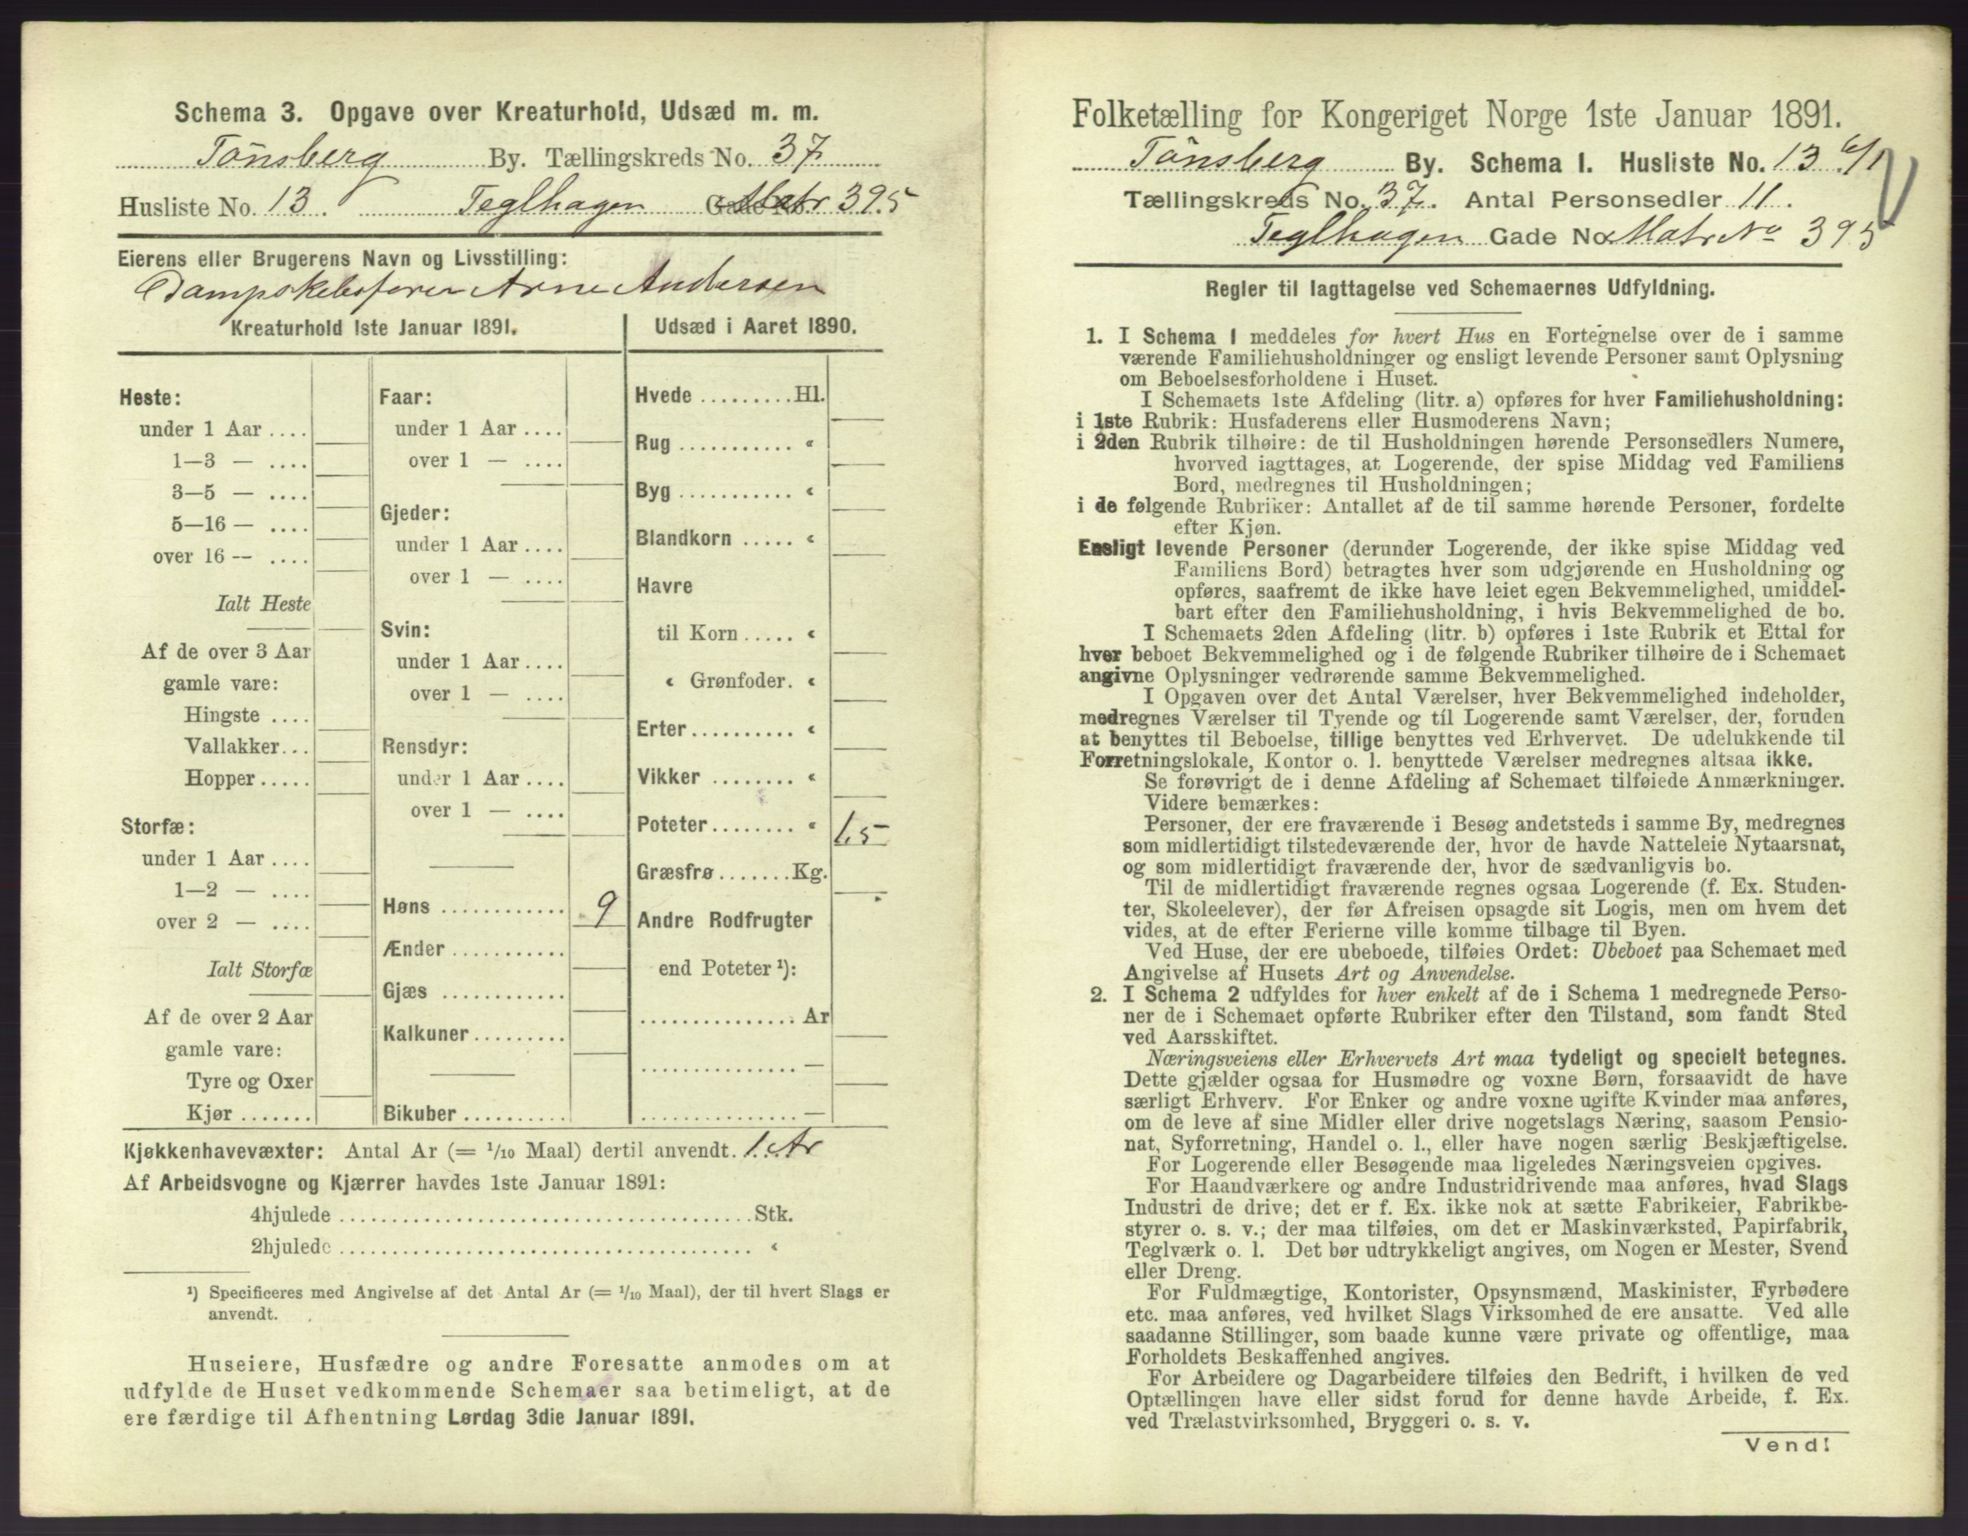 Schema 3. Opgave over Kreaturhold, Udsæd m. m.
Tönsberg By. Tællingskreds No. 37
Husliste No. 13. Teglhagen Gade No. Matr 395
Eierens eller Brugerens Navn og Livsstilling:
Dampskibsfører Arne Andersen
Kreaturhold 1ste Januar 1891.
Heste:
under 1 Aar ....
1—3 — ....
3—5 — ....
5—16 — ....
over 16 — ....
Ialt Heste
Af de over 3 Aar
gamle vare:
Hingste ....
Vallakker...
Hopper.....
Storfæ:
under 1 Aar ....
1—2 — ....
over 2 — ....
Ialt Storfæ
Af de over 2 Aar
gamle vare:
Tyre og Oxer
Kjør .......
Faar:
under 1 Aar ....
over 1 — ....
Gjeder:
under 1 Aar ....
over 1 — ....
Svin:
under 1 Aar ....
over 1 — ....
Rensdyr:
under 1 Aar ....
over 1 — ....
Høns ............ 9
Ænder ...........
Gjæs ............
Kalkuner .........
Bikuber ..........
Udsæd i Aaret 1890.
Hvede .........Hl.
Rug ........... «
Byg ........... «
Blandkorn ..... «
Havre
til Korn ..... «
« Grønfoder. «
Erter.......... «
Vikker ........ «
Poteter........ « 1,5
Græsfrø .......Kg.
Andre Rodfrugter
end Poteter ¹):
............... Ar
............... —
............... —
Kjøkkenhavevæxter: Antal Ar (= 1/10 Maal) dertil anvendt. 1. Ar
Af Arbeidsvogne og Kjærrer havdes 1ste Januar 1891:
4hjulede ......................................Stk.
2hjulede ...................................... «
¹) Specificeres med Angivelse af det Antal Ar (= 1/10 Maal), der til hvert Slags er
anvendt.
Huseiere, Husfædre og andre Foresatte anmodes om at
udfylde de Huset vedkommende Schemaer saa betimeligt, at de
ere færdige til Afhentning Lørdag 3die Januar 1891.
Folketælling for Kongeriget Norge 1ste Januar 1891.
Tönsberg By. Schema 1. Husliste No. 13 6/1
Tællingskreds No. 37. Antal Personsedler 11.
Teglhagen Gade No. Matr No 395
Regler til Iagttagelse ved Schemaernes Udfyldning.
1. I Schema 1 meddeles for hvert Hus en Fortegnelse over de i samme
værende Familiehusholdninger og ensligt levende Personer samt Oplysning
om Beboelsesforholdene i Huset.
I Schemaets 1ste Afdeling (litr. a) opføres for hver Familiehusholdning:
i 1ste Rubrik: Husfaderens eller Husmoderens Navn;
i 2den Rubrik tilhøire: de til Husholdningen hørende Personsedlers Numere,
hvorved iagttages, at Logerende, der spise Middag ved Familiens
Bord, medregnes til Husholdningen;
i de følgende Rubriker: Antallet af de til samme hørende Personer, fordelte
efter Kjøn.
Ensligt levende Personer (derunder Logerende, der ikke spise Middag ved
Familiens Bord) betragtes hver som udgjørende en Husholdning og
opføres, saafremt de ikke have leiet egen Bekvemmelighed, umiddel-
bart efter den Familiehusholdning, i hvis Bekvemmelighed de bo.
I Schemaets 2den Afdeling (litr. b) opføres i 1ste Rubrik et Ettal for
hver beboet Bekvemmelighed og i de følgende Rubriker tilhøire de i Schemaet
angivne Oplysninger vedrørende samme Bekvemmelighed.
I Opgaven over det Antal Værelser, hver Bekvemmelighed indeholder,
medregnes Værelser til Tyende og til Logerende samt Værelser, der, foruden
at benyttes til Beboelse, tillige benyttes ved Erhvervet. De udelukkende til
Forretningslokale, Kontor o. l. benyttede Værelser medregnes altsaa ikke.
Se forøvrigt de i denne Afdeling af Schemaet tilføiede Anmærkninger.
Videre bemærkes:
Personer, der ere fraværende i Besøg andetsteds i samme By, medregnes
som midlertidigt tilstedeværende der, hvor de havde Natteleie Nytaarsnat,
og som midlertidigt fraværende der, hvor de sædvanligvis bo.
Til de midlertidigt fraværende regnes ogsaa Logerende (f. Ex. Studen-
ter, Skoleelever), der før Afreisen opsagde sit Logis, men om hvem det
vides, at de efter Ferierne ville komme tilbage til Byen.
Ved Huse, der ere ubeboede, tilføies Ordet: Ubeboet paa Schemaet med
Angivelse af Husets Art og Anvendelse.
2. I Schema 2 udfyldes for hver enkelt af de i Schema 1 medregnede Perso-
ner de i Schemaet opførte Rubriker efter den Tilstand, som fandt Sted
ved Aarsskiftet.
Næringsveiens eller Erhvervets Art maa tydeligt og specielt betegnes.
Dette gjælder ogsaa for Husmødre og voxne Børn, forsaavidt de have
særligt Erhverv. For Enker og andre voxne ugifte Kvinder maa anføres,
om de leve af sine Midler eller drive nogetslags Næring, saasom Pensio-
nat, Syforretning, Handel o. l., eller have nogen særlig Beskjæftigelse.
For Logerende eller Besøgende maa ligeledes Næringsveien opgives.
For Haandværkere og andre Industridrivende maa anføres, hvad Slags
Industri de drive; det er f. Ex. ikke nok at sætte Fabrikeier, Fabrikbe-
styrer o. s. v.; der maa tilføies, om det er Maskinværksted, Papirfabrik,
Teglværk o. l. Det bør udtrykkeligt angives, om Nogen er Mester, Svend
eller Dreng.
For Fuldmægtige, Kontorister, Opsynsmænd, Maskinister, Fyrbødere
etc. maa anføres, ved hvilket Slags Virksomhed de ere ansatte. Ved alle
saadanne Stillinger, som baade kunne være private og offentlige, maa
Forholdets Beskaffenhed angives.
For Arbeidere og Dagarbeidere tilføies den Bedrift, i hvilken de ved
Optællingen have eller sidst forud for denne havde Arbeide, f. Ex.
ved Trælastvirksomhed, Bryggeri o. s. v.
Vend!